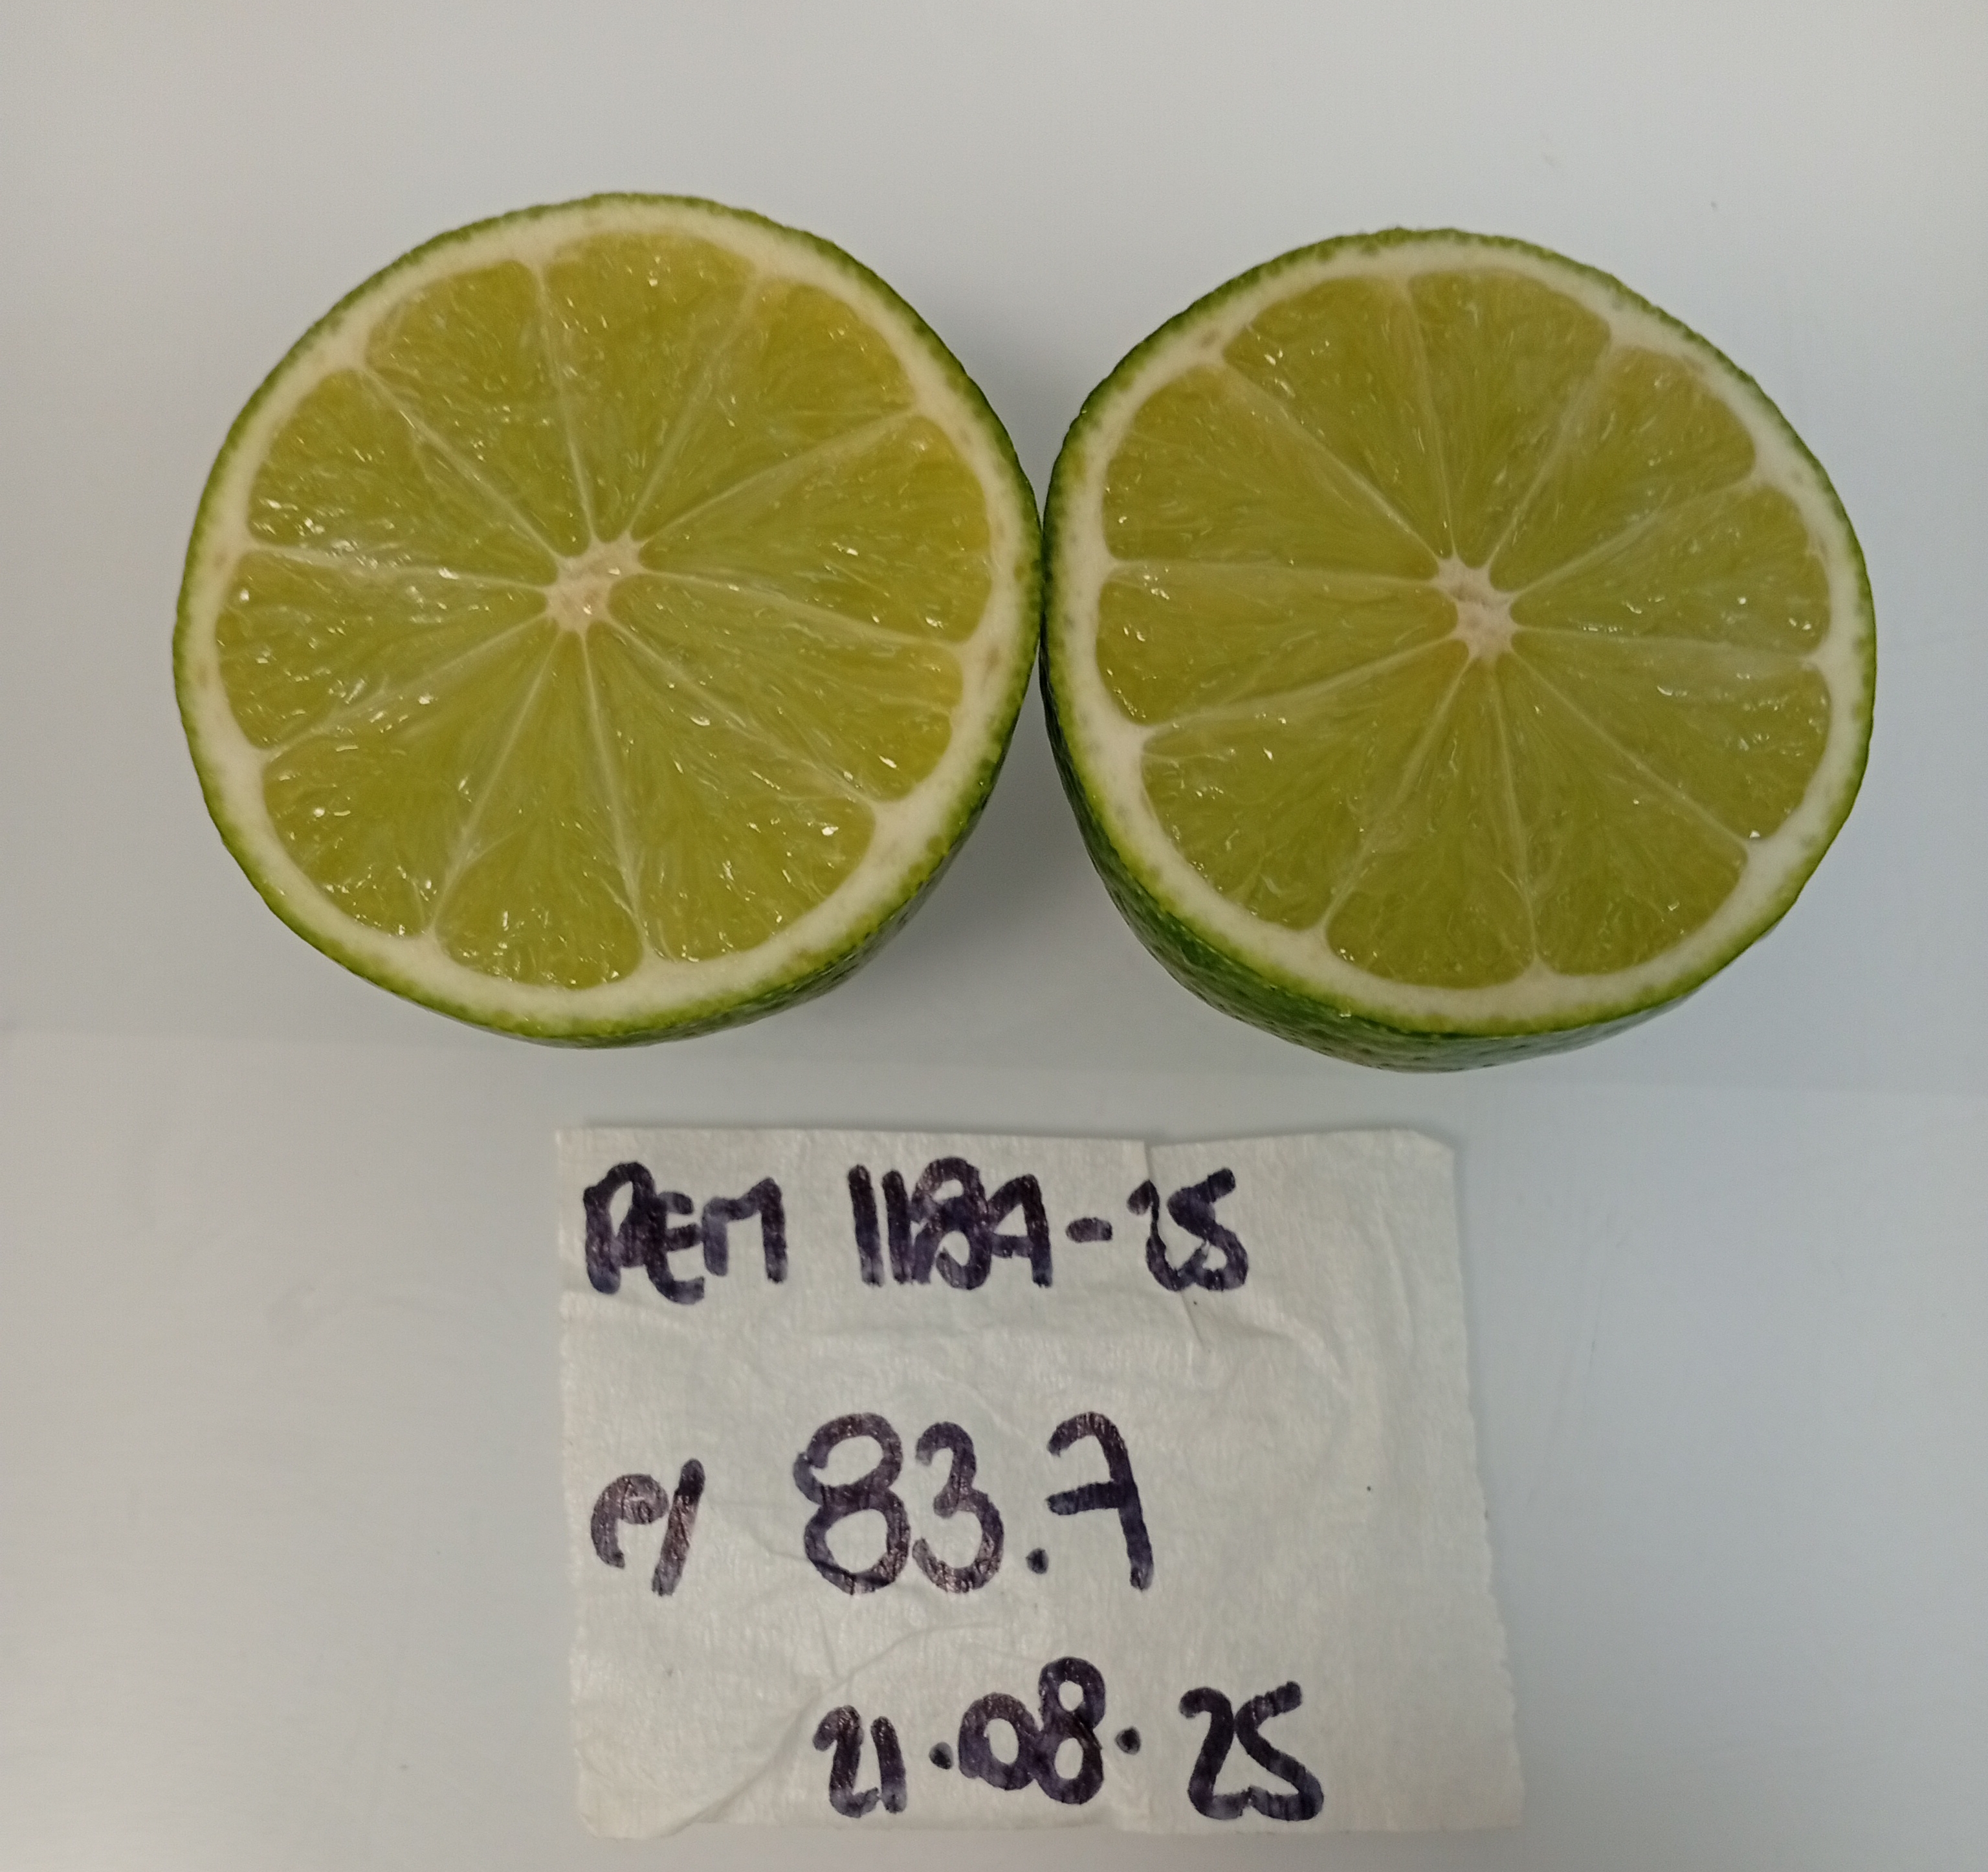 REM 1187-25
P/ 83.7
21.08.25